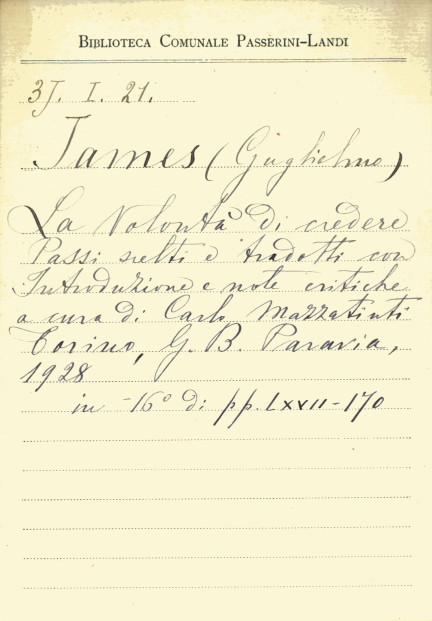 BIBLIOTECA COMUNALE PASSERINI-LANDI
3J. I. 21.
James (Guglielmo)
La Volontà di credere
Passi scelti e tradotti con
Introduzione e note critiche
a cura di Carlo Mazzatinti
Torino, G. B. Paravia,
1928
in -16° di pp. LXVII-170